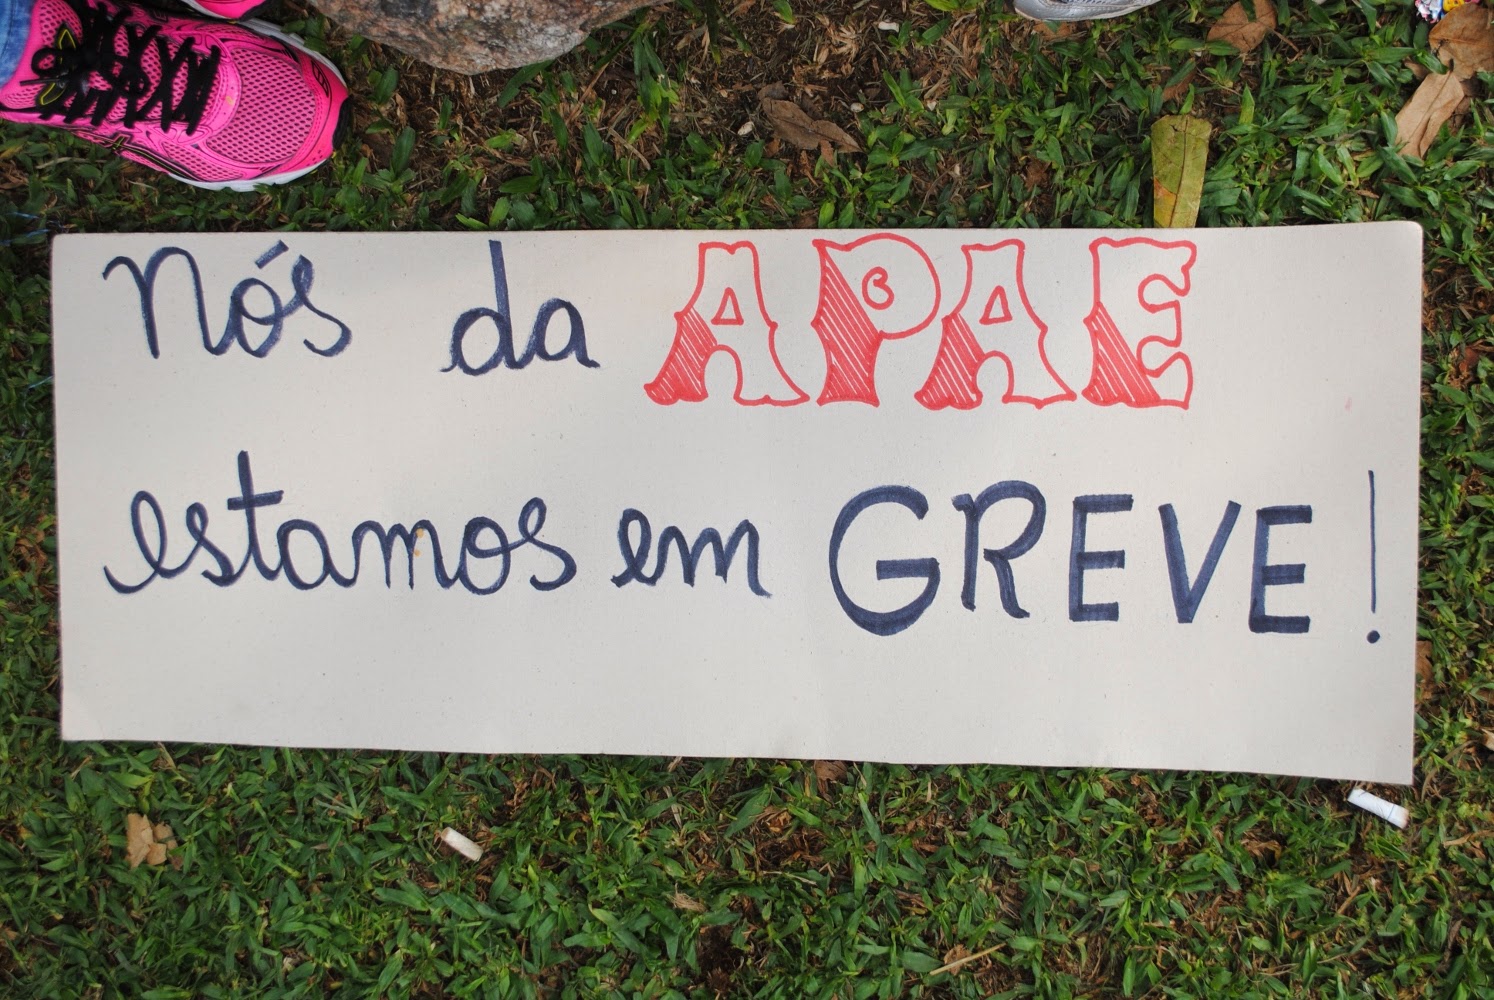 Nós da APAE
estamos em GREVE!